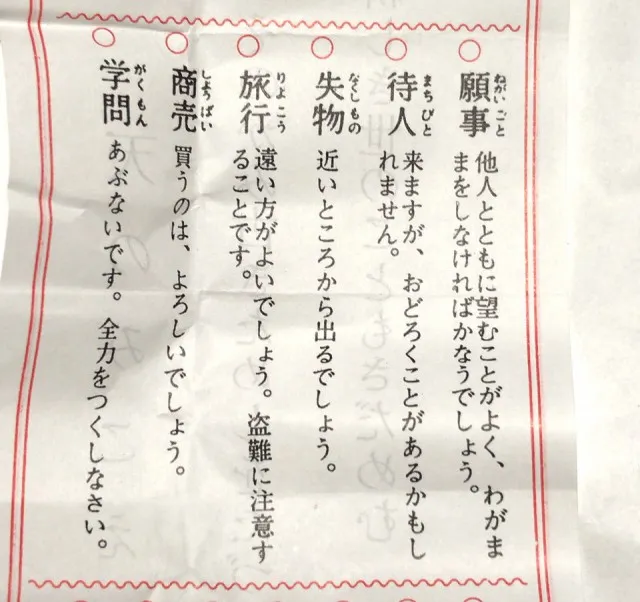 願事 他人とともに望むことがよく、わがま
まをしなければかなうでしょう。
待人 来ますが、おどろくことがあるかもし
れません。
失物 近いところから出るでしょう。
旅行 遠い方がよいでしょう。盗難に注意す
ることです。
商売 買うのは、よろしいでしょう。
学問 あぶないです。全力をつくしなさい。